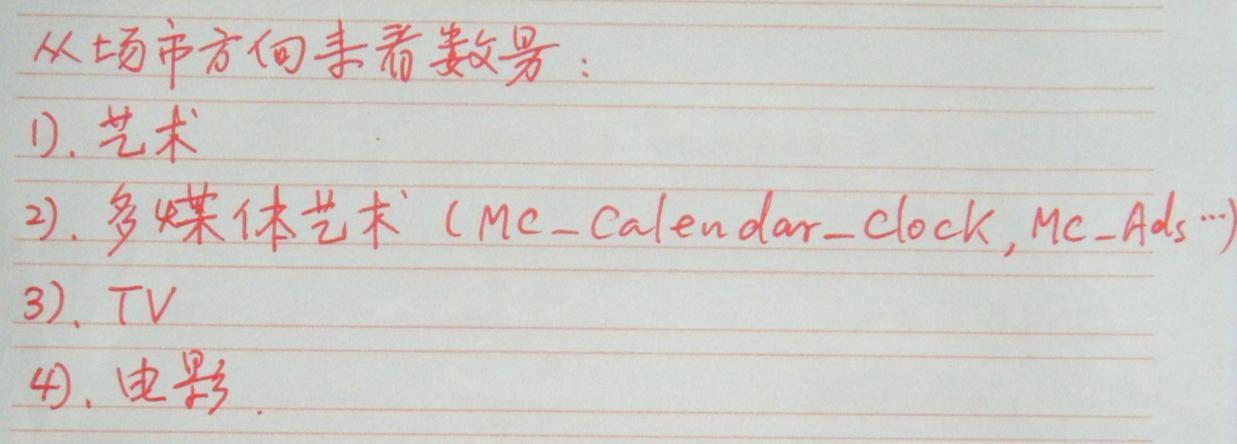 从场市方向来看数另：
1). 艺术
2). 多媒体艺术 (MC_Calendar_Clock, MC_Ads…)
3). TV
4). 电影.